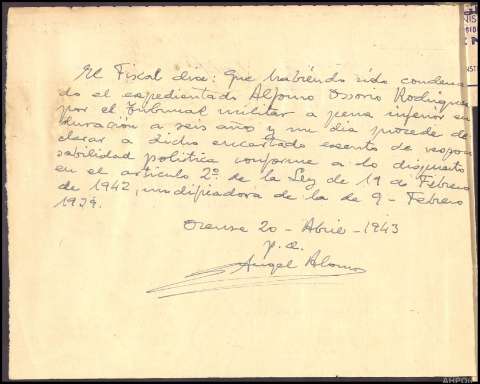 El Fiscal dice: Que habiendo sido condena
do el expedientado Alfonso Ossorio Rodriguez
por el Tribunal militar a pena inferior en
duración a seis años y un dia procede de
clarar a dicho encartado exento de respon
sabilidad politica conforme a lo dispuesto
en el articulo 2º de la Ley de 19 de Febrero
de 1942, modificadora de la de 9 - Febrero
1939.
Orense 20 - Abril - 1943
p. a.
Angel Alonso